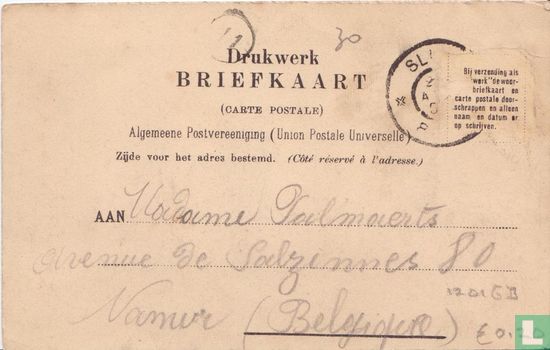 30
Drukwerk
BRIEFKAART
(CARTE POSTALE)
Algemeene Postvereeniging (Union Postale Universelle)
Zijde voor het adres bestemd. (Côté réservé à l'adresse.)
SL
Bij verzending als
werk" de woor-
briefkaart en
carte postale door-
schrappen en alleen
naam en datum er
op schrijven.
AAN Madame Palmaerts
Avenue de Salzennes 80
Namur (Belgique)
1201GB
€0,20